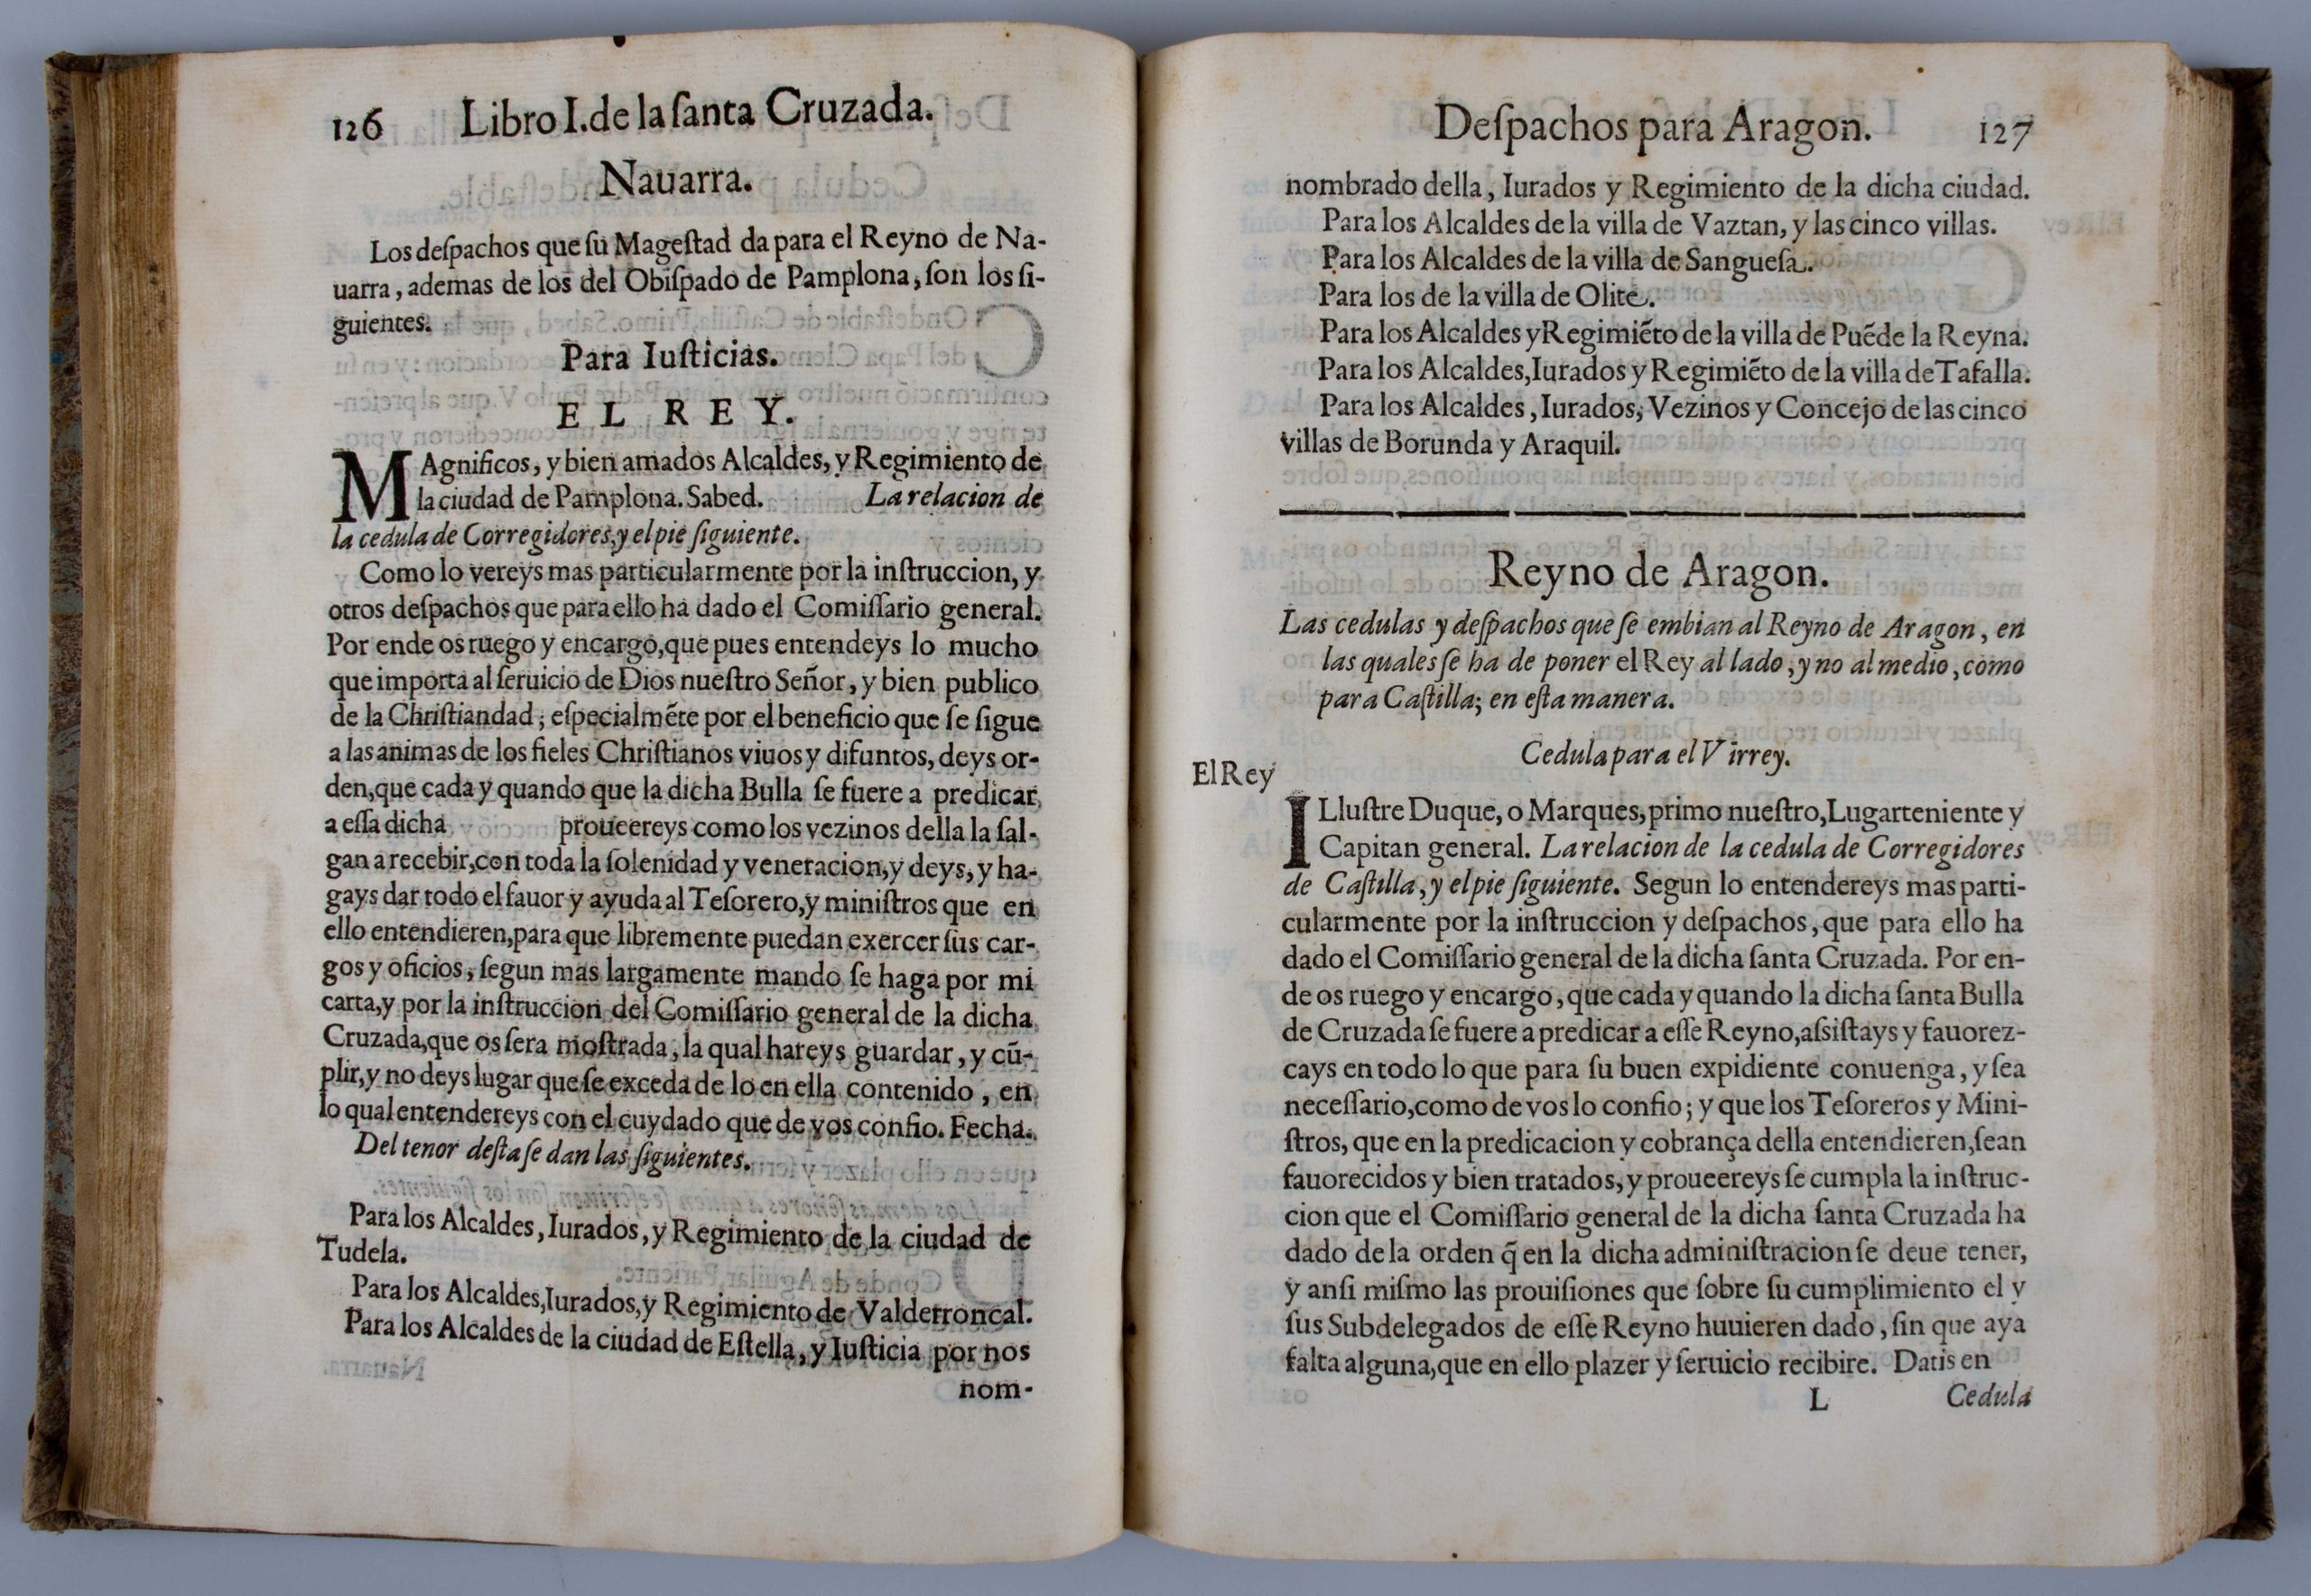 126 Libro I. de la ſanta Cruzada.
Nauarra.
Los deſpachos que ſu Mageſtad da para el Reyno de Na-
uarra, ademas de los del Obiſpado de Pamplona, ſon los ſi-
guientes.
Para Iuſticias.
EL REY.
MAgnificos, y bien amados Alcaldes, y Regimiento de
la ciudad de Pamplona. Sabed. La relacion de
la cedula de Corregidores, y el pie ſiguiente.
Como lo vereys mas particularmente por la inſtruccion, y
otros deſpachos que para ello ha dado el Comiſſario general.
Por ende os ruego y encargo, que pues entendeys lo mucho
que importa al ſeruicio de Dios nueſtro Señor, y bien publico
de la Chriſtiandad; eſpecialmẽte por el beneficio que ſe ſigue
a las animas de los fieles Chriſtianos viuos y difuntos, deys or-
den, que cada y quando que la dicha Bulla ſe fuere a predicar
a eſſa dicha proueereys como los vezinos della la ſal-
gan a recebir, con toda la ſolenidad y veneracion, y deys, y ha-
gays dar todo el fauor y ayuda al Teſorero, y miniſtros que en
ello entendieren, para que libremente puedan exercer ſus car-
gos y oficios, ſegun mas largamente mando ſe haga por mi
carta, y por la inſtruccion del Comiſſario general de la dicha
Cruzada, que os ſera moſtrada, la qual hareys guardar, y cũ-
plir, y no deys lugar que ſe exceda de lo en ella contenido, en
lo qual entendereys con el cuydado que de vos confio. Fecha.
Del tenor deſta ſe dan las ſiguientes.
Para los Alcaldes, Iurados, y Regimiento de la ciudad de
Tudela.
Para los Alcaldes, Iurados, y Regimiento de Valderroncal.
Para los Alcaldes de la ciudad de Eſtella, y Iuſticia por nos
nom-
Deſpachos para Aragon. 127
nombrado della, Iurados y Regimiento de la dicha ciudad.
Para los Alcaldes de la villa de Vaztan, y las cinco villas.
Para los Alcaldes de la villa de Sangueſa.
Para los de la villa de Olite.
Para los Alcaldes y Regimiẽto de la villa de Puẽde la Reyna.
Para los Alcaldes, Iurados y Regimiẽto de la villa de Tafalla.
Para los Alcaldes, Iurados, Vezinos y Concejo de las cinco
villas de Borunda y Araquil.
Reyno de Aragon.
Las cedulas y deſpachos que ſe embian al Reyno de Aragon, en
las quales ſe ha de poner el Rey al lado, y no al medio, como
para Caſtilla; en eſta manera.
Cedula para el Virrey.
El Rey
ILluſtre Duque, o Marques, primo nueſtro, Lugarteniente y
Capitan general. La relacion de la cedula de Corregidores
de Caſtilla, y el pie ſiguiente. Segun lo entendereys mas parti-
cularmente por la inſtruccion y deſpachos, que para ello ha
dado el Comiſſario general de la dicha ſanta Cruzada. Por en-
de os ruego y encargo, que cada y quando la dicha ſanta Bulla
de Cruzada ſe fuere a predicar a eſſe Reyno, aſsiſtays y fauorez-
cays en todo lo que para ſu buen expidiente conuenga, y ſea
neceſſario, como de vos lo confio; y que los Teſoreros y Mini-
ſtros, que en la predicacion y cobrança della entendieren, ſean
fauorecidos y bien tratados, y proueereys ſe cumpla la inſtruc-
cion que el Comiſſario general de la dicha ſanta Cruzada ha
dado de la orden q̃ en la dicha adminiſtracion ſe deue tener,
y anſi miſmo las prouiſiones que ſobre ſu cumplimiento el y
ſus Subdelegados de eſſe Reyno huuieren dado, ſin que aya
falta alguna, que en ello plazer y ſeruicio recibire. Datis en
L Cedula